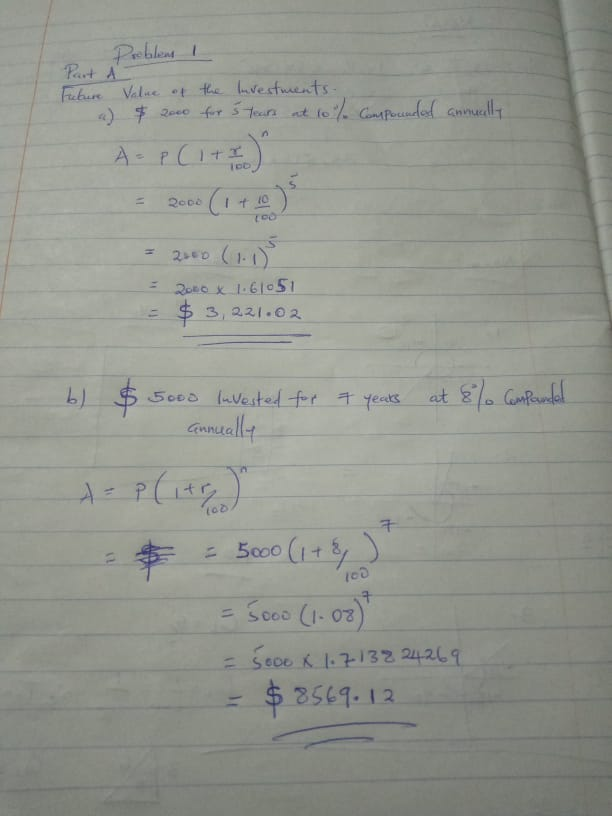 Problem 1
Part A
Future Value of the Investments.
a) $ 2000 for 5 Years at 10% Compounded annually
A = P(1 + r/100)^n
= 2000 (1 + 10/100)^5
= 2000 (1.1)^5
= 2000 x 1.61051
= $ 3,221.02
b) $ 5000 Invested for 7 years at 8% Compounded
annually
A = P(1+r/100)^n
= = 5000 (1 + 8/100)^7
= 5000 (1.08)^7
= 5000 x 1.713824269
= $ 8569.12